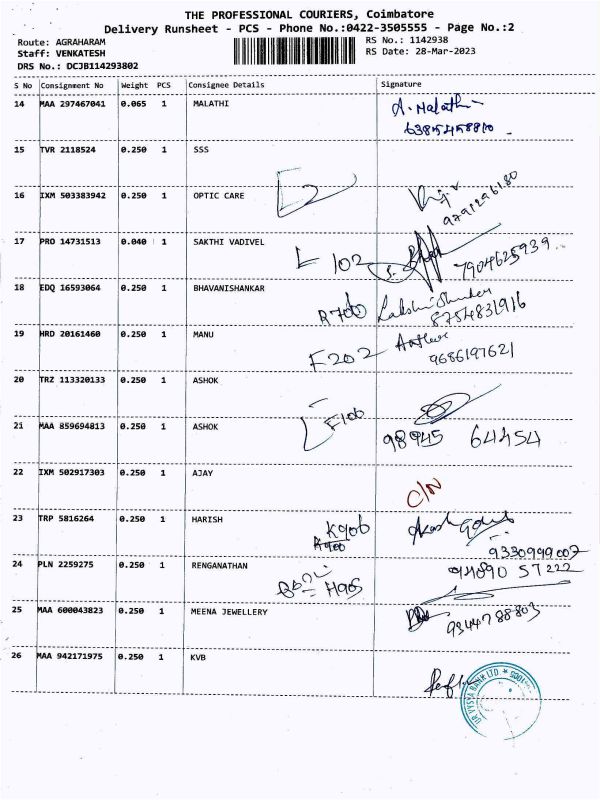 THE PROFESSIONAL COURIERS, Coimbatore
Delivery Runsheet - PCS - Phone No.:0422-3505555 - Page No.:2
Route: AGRAHARAM RS No.: 1142938
Staff: VENKATESH RS Date: 28-Mar-2023
DRS No.: DCJB114293802
S No Consignment No Weight PCS Consignee Details Signature
14 MAA 297467041 0.065 1 MALATHI A. Malathi
6385458810
15 TVR 2118524 0.250 1 SSS
16 IXM 503383942 0.250 1 OPTIC CARE E2
9791296180
17 PRO 14731513 0.040 1 SAKTHI VADIVEL
F 102 7904625939
18 EDQ 16593064 0.250 1 BHAVANISHANKAR
A706 Lakshmi Shankar
8754831916
19 HRD 20161460 0.250 1 MANU
F202 9686197621
20 TRZ 113320133 0.250 1 ASHOK
F106
21 MAA 859694813 0.250 1 ASHOK
98945 64454
22 IXM 502917303 0.250 1 AJAY
C/N
23 TRP 5816264 0.250 1 HARISH
K906
A900 9330999007
24 PLN 2259275 0.250 1 RENGANATHAN 94890 57222
H905
25 MAA 600043823 0.250 1 MEENA JEWELLERY
9344788803
26 MAA 942171975 0.250 1 KVB
UR VYSYA BANK LTD